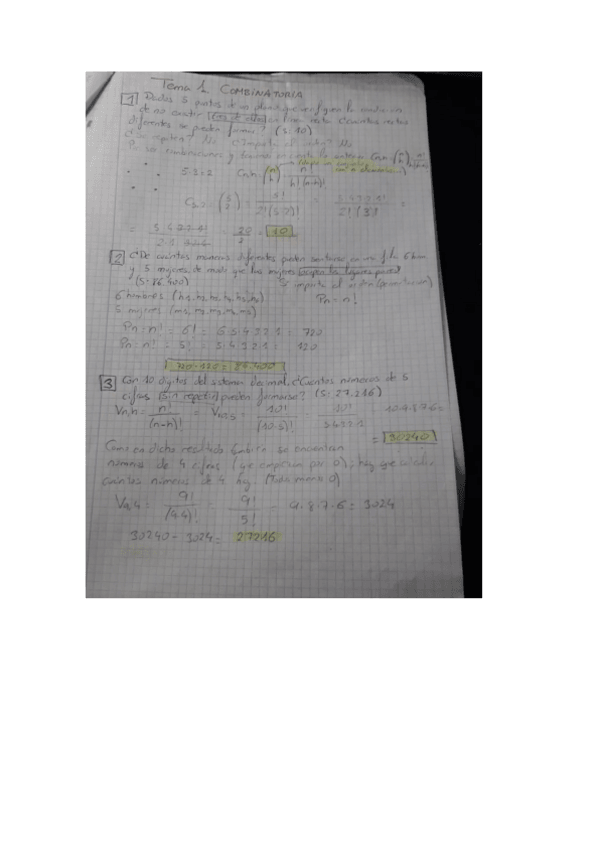 Tema 1 COMBINATORIA
1 Dados 5 puntos de un plano que verifiquen la condición
de no existir en línea recta ¿Cuántas rectas
diferentes se pueden formar? (S:10)
¿Se repiten? No ¿Importa el orden? No
C5,2 = (5 2) = 5! / 2!(5-2)! = 5·4·3·2·1 / 2!(3)! =
= 5·4·3·2·1 / 2·1·3·2·1 = 20 / 2 = 10
2 ¿De cuántas maneras diferentes pueden sentarse en una fila 6 hom
y 5 mujeres de modo que las mujeres ocupen los lugares pares?
(S=86.400) Sí importa el orden (permutación)
6 hombres (h1, h2, h3, h4, h5, h6) Pn = n!
5 mujeres (m1, m2, m3, m4, m5)
Pn = n! = 6! = 6·5·4·3·2·1 = 720
Pn = n! = 5! = 5·4·3·2·1 = 120
720·120 = 86.400
3 Con 10 dígitos del sistema decimal. ¿Cuántos números de 5
cifras sin repetir pueden formarse? (S: 27.216)
Vn,h = n! / (n-h)! = V10,5 10! / (10-5)! 10! / 5·4·3·2·1 10·9·8·7·6 =
= 30240
Como en dicho resultado también se encuentran
números de 4 cifras (que empiezan por 0), hay que
cuántos números de 4 hay. (Todos menos 0)
V9,4 = 9! / (9-4)! = 9! / 5! = 9·8·7·6 = 3024
30240 - 3024 = 27216